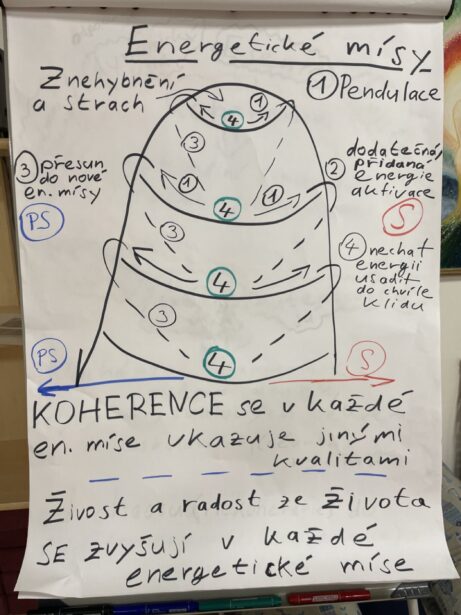 Energetické mísy
Znehybnění
a strach
① Pendulace
④
①
③
③ přesun
do nové
en. mísy
PS
② dodatečná,
přidaná
energie
aktivace
S
①
④
①
③
④ nechat
energii
usadit
do chvíle
klidu
④
③
PS
④
S
KOHERENCE se v každé
en. míse ukazuje jinými
kvalitami
Živost a radost ze života
SE ZVYŠUJÍ V KAŽDÉ
energetické míse